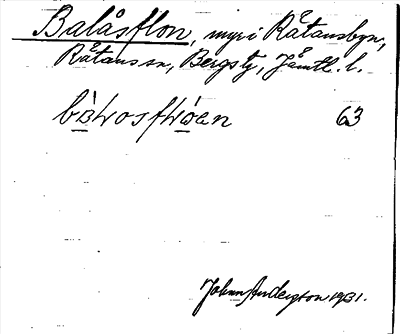 Balåsflon, myr i Råtansbyn,
Råtans sn, Bergs tg, Jämtl. l.
63
Johan Anderson 1931.